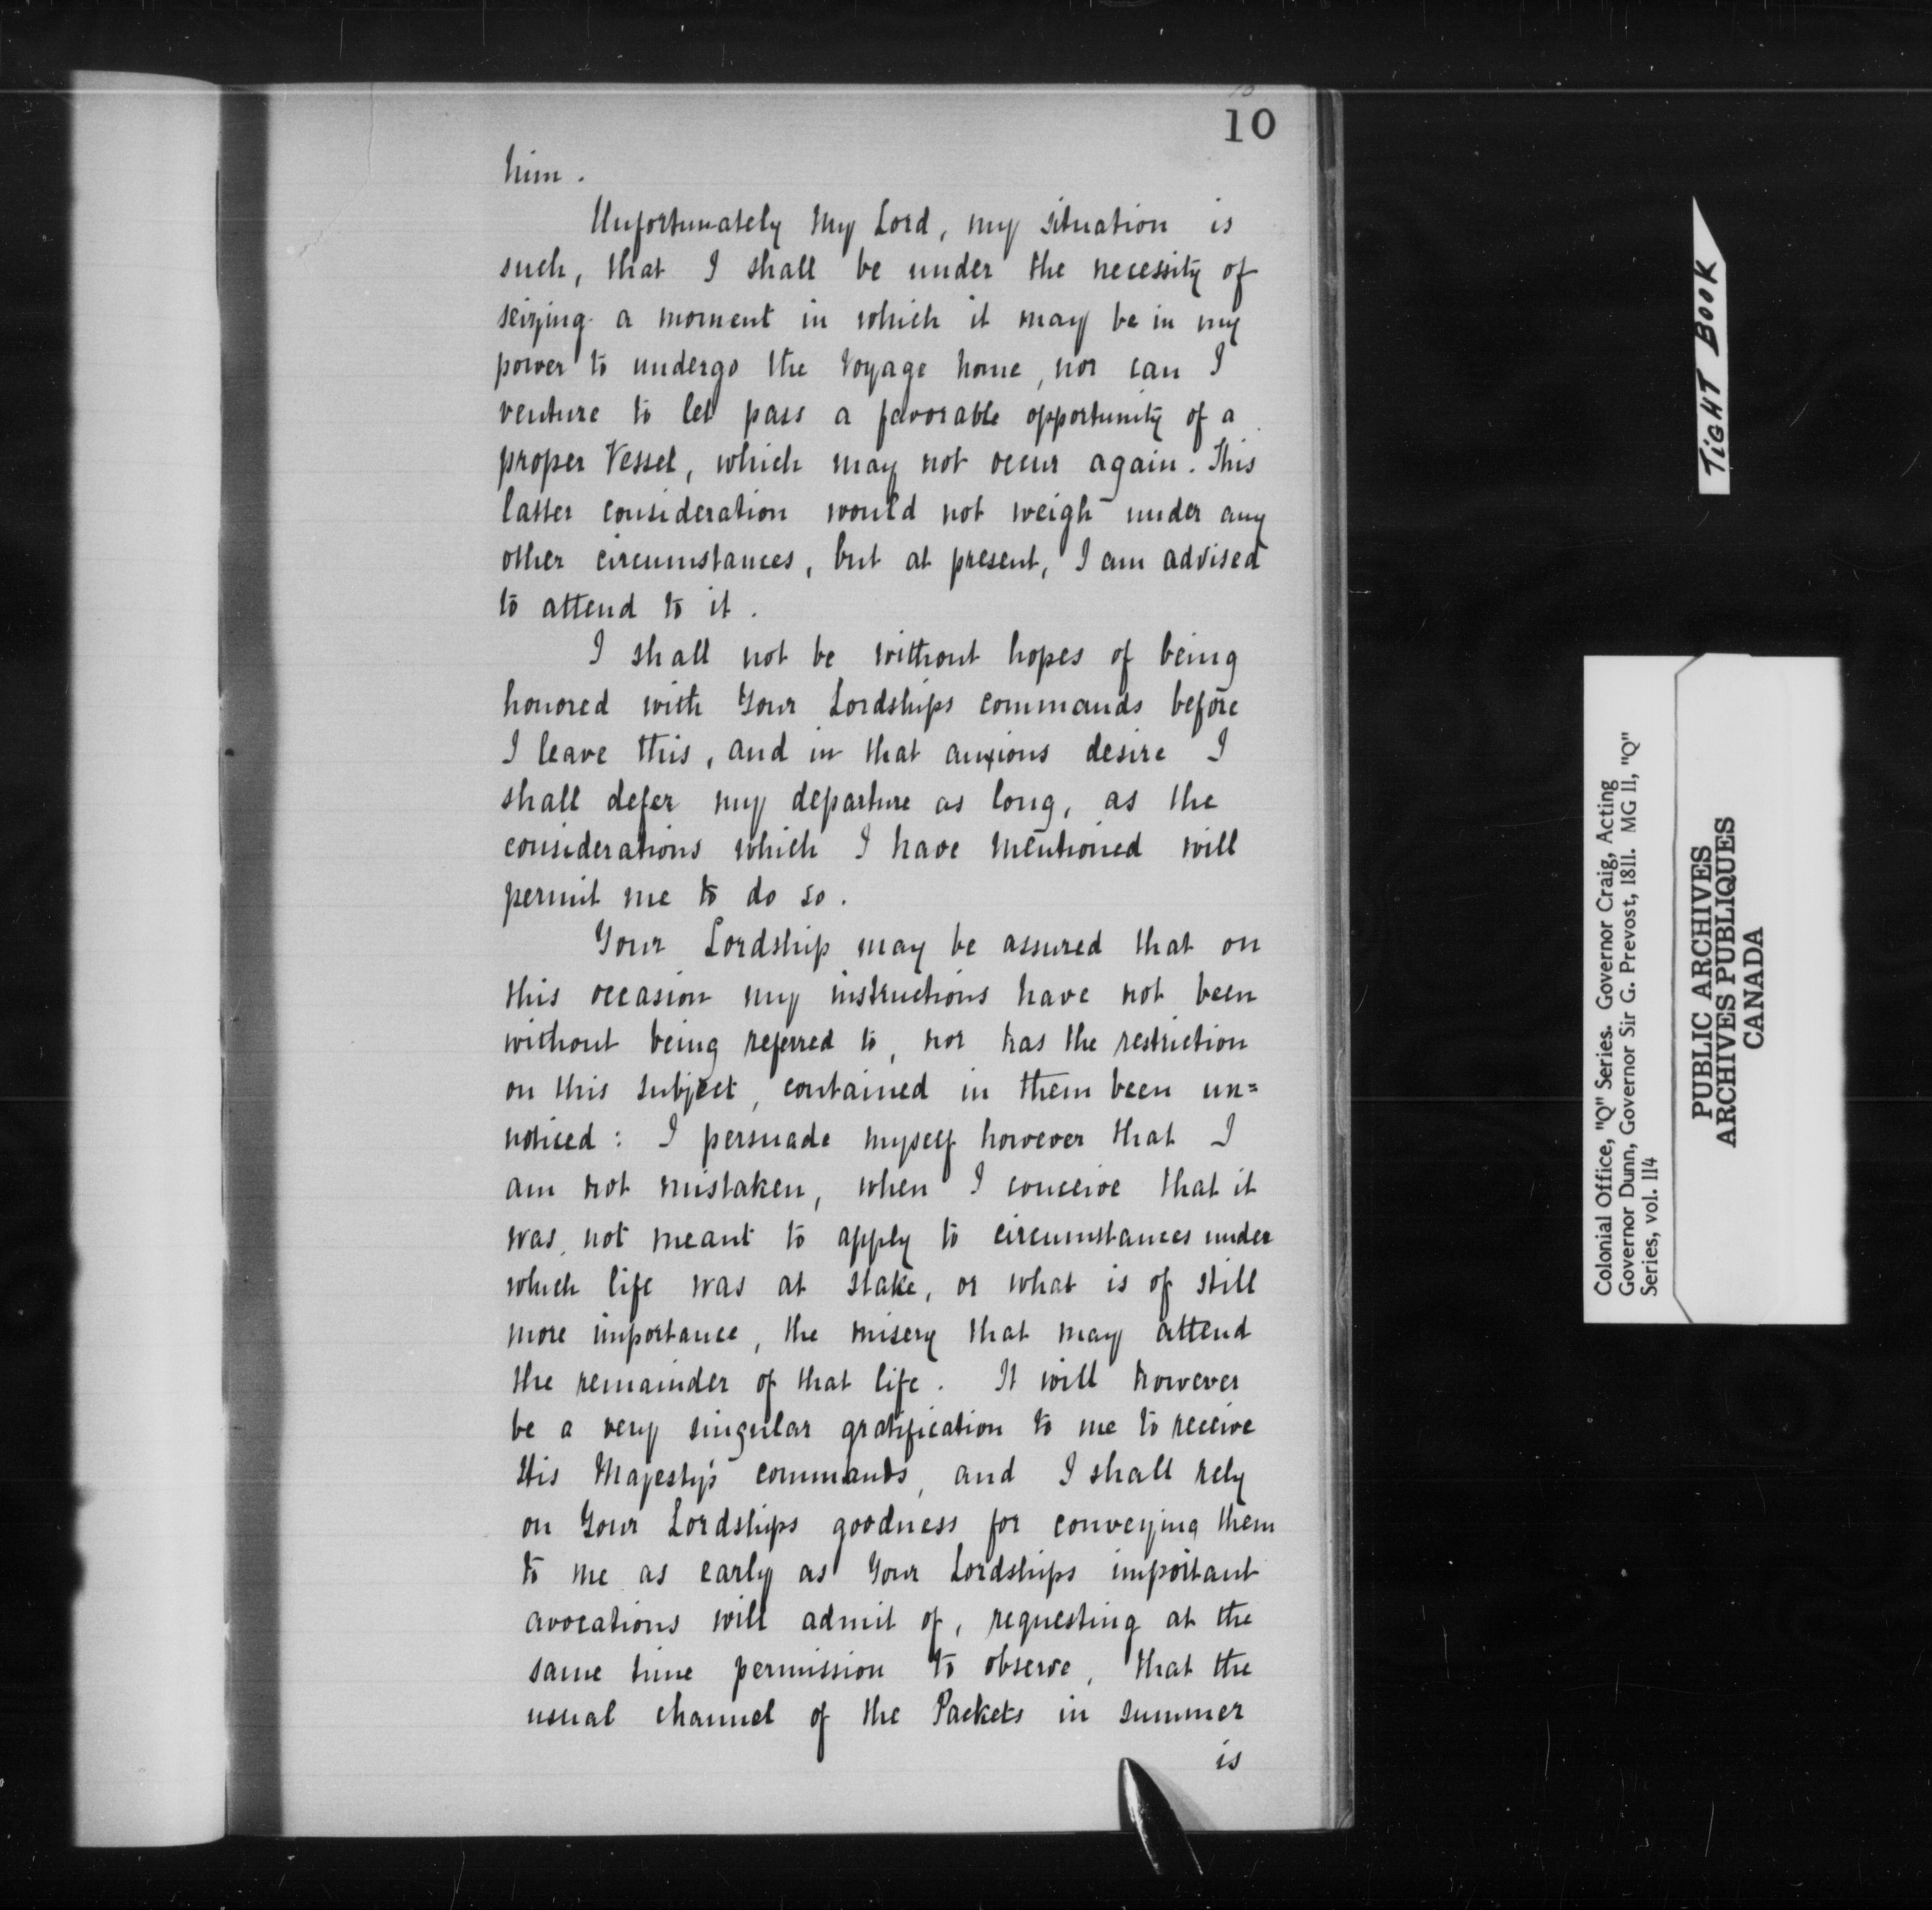 10
him.
Unfortunately My Lord, my situation is
such, that I shall be under the necessity of
seizing a moment in which it may be in my
power to undergo the Voyage home, nor can I
venture to let pass a favorable opportunity of a
proper Vessel, which may not occur again. This
latter consideration would not weigh under any
other circumstances, but at present, I am advised
to attend to it.
I shall not be without hopes of being
honored with Your Lordships commands before
I leave this, and in that anxious desire I
shall defer my departure as long, as the
considerations which I have mentioned will
permit me to do so.
Your Lordship may be assured that on
this occasion my instructions have not been
without being referred to, nor has the restriction
on this subject, contained in them been un=
noticed: I persuade myself however that I
am not mistaken, when I conceive that it
was not meant to apply to circumstances under
which life was at stake, or what is of still
more importance, the misery that may attend
the remainder of that life. It will however
be a very singular gratification to me to receive
His Majesty's commands, and I shall rely
on Your Lordships goodness for conveying them
to me as early as Your Lordships important
avocations will admit of, requesting at the
same time permission to observe, that the
usual channel of the Packets in summer
is
TIGHT BOOK
Colonial Office, "Q" Series. Governor Craig, Acting
Governor Dunn, Governor Sir G. Prevost, 1811. MG 11, "Q"
Series, vol. 114
PUBLIC ARCHIVES
ARCHIVES PUBLIQUES
CANADA